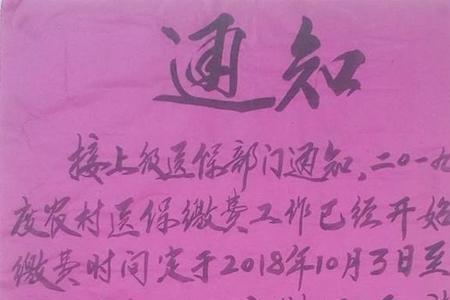 通知
接上级医保部门通知,二〇一九
度农村医保缴费工作已经开始
缴费时间定于2018年10月3日至